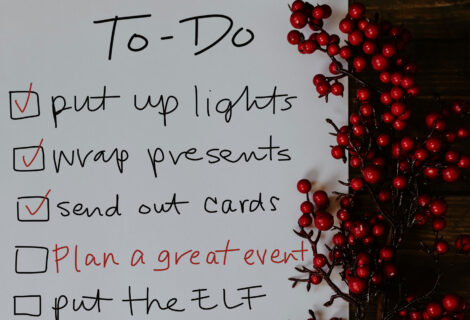 To-Do
put up lights
wrap presents
send out cards
Plan a great event
put the ELF